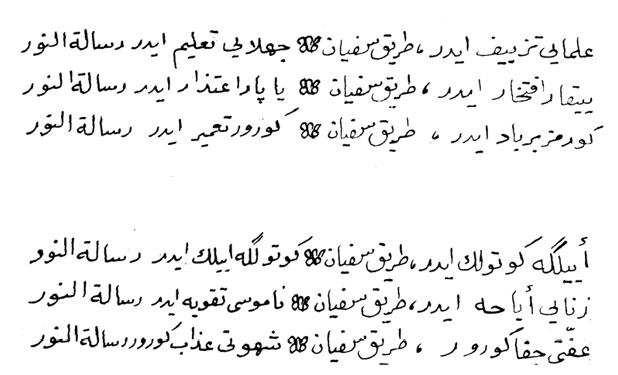 علمايى تزييف ايدر ، طريق سفيان ❊ جهلايى تعليم ايدر رسالة النور
ييقار افتخار ايدر ، طريق سفيان ❊ ياپار اعتذار ايدر رسالة النور
كورمز برباد ايدر ، طريق سفيان ❊ كورور تعمير ايدر رسالة النور
أييلگه كوتولك ايدر ، طريق سفيان ❊ كوتولگه اييلك ايدر رسالة النور
زنايى أباحه ايدر ، طريق سفيان ❊ ناموسى تقويه ايدر رسالة النور
عفّتى جفا كورور ، طريق سفيان ❊ شهوتى عذاب كورور رسالة النور